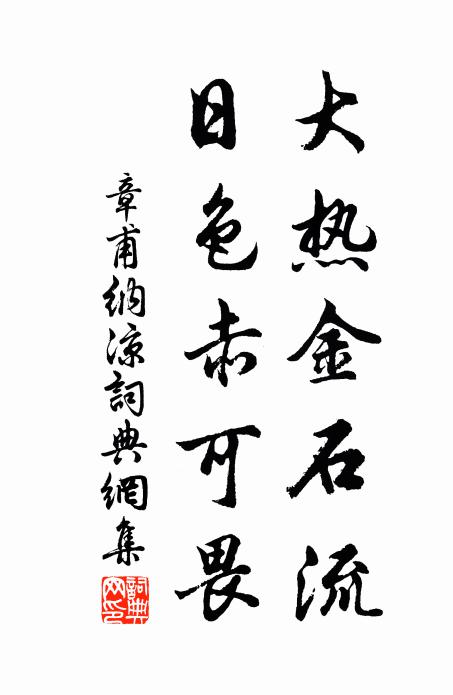 大热金石流
日色赤可畏
章甫納涼詞典網集
詞典網印